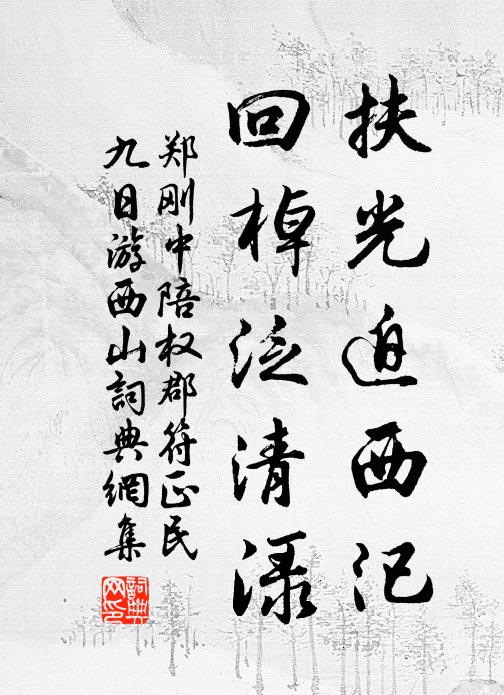 扶光迫西汜
回棹泛清渌
郑刚中陪权郡符正民
九日游西山詞典網集
詞典
网印